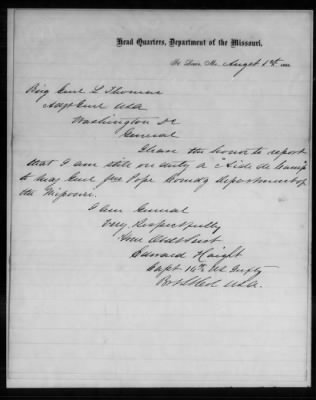 Head Quarters, Department of the Missouri.
St Louis, Mo. August 1st
Brig Genl L Thomas
Adjt Genl USA
Washington DC
General
I have the honor to report
that I am still on duty as Aide de Camp
to Maj Genl Jno Pope Comdg department of
the Missouri.
I am General
Very Respectfully
Your Obdt Servt
Edward Haight
Capt 16th US Infty
USA.